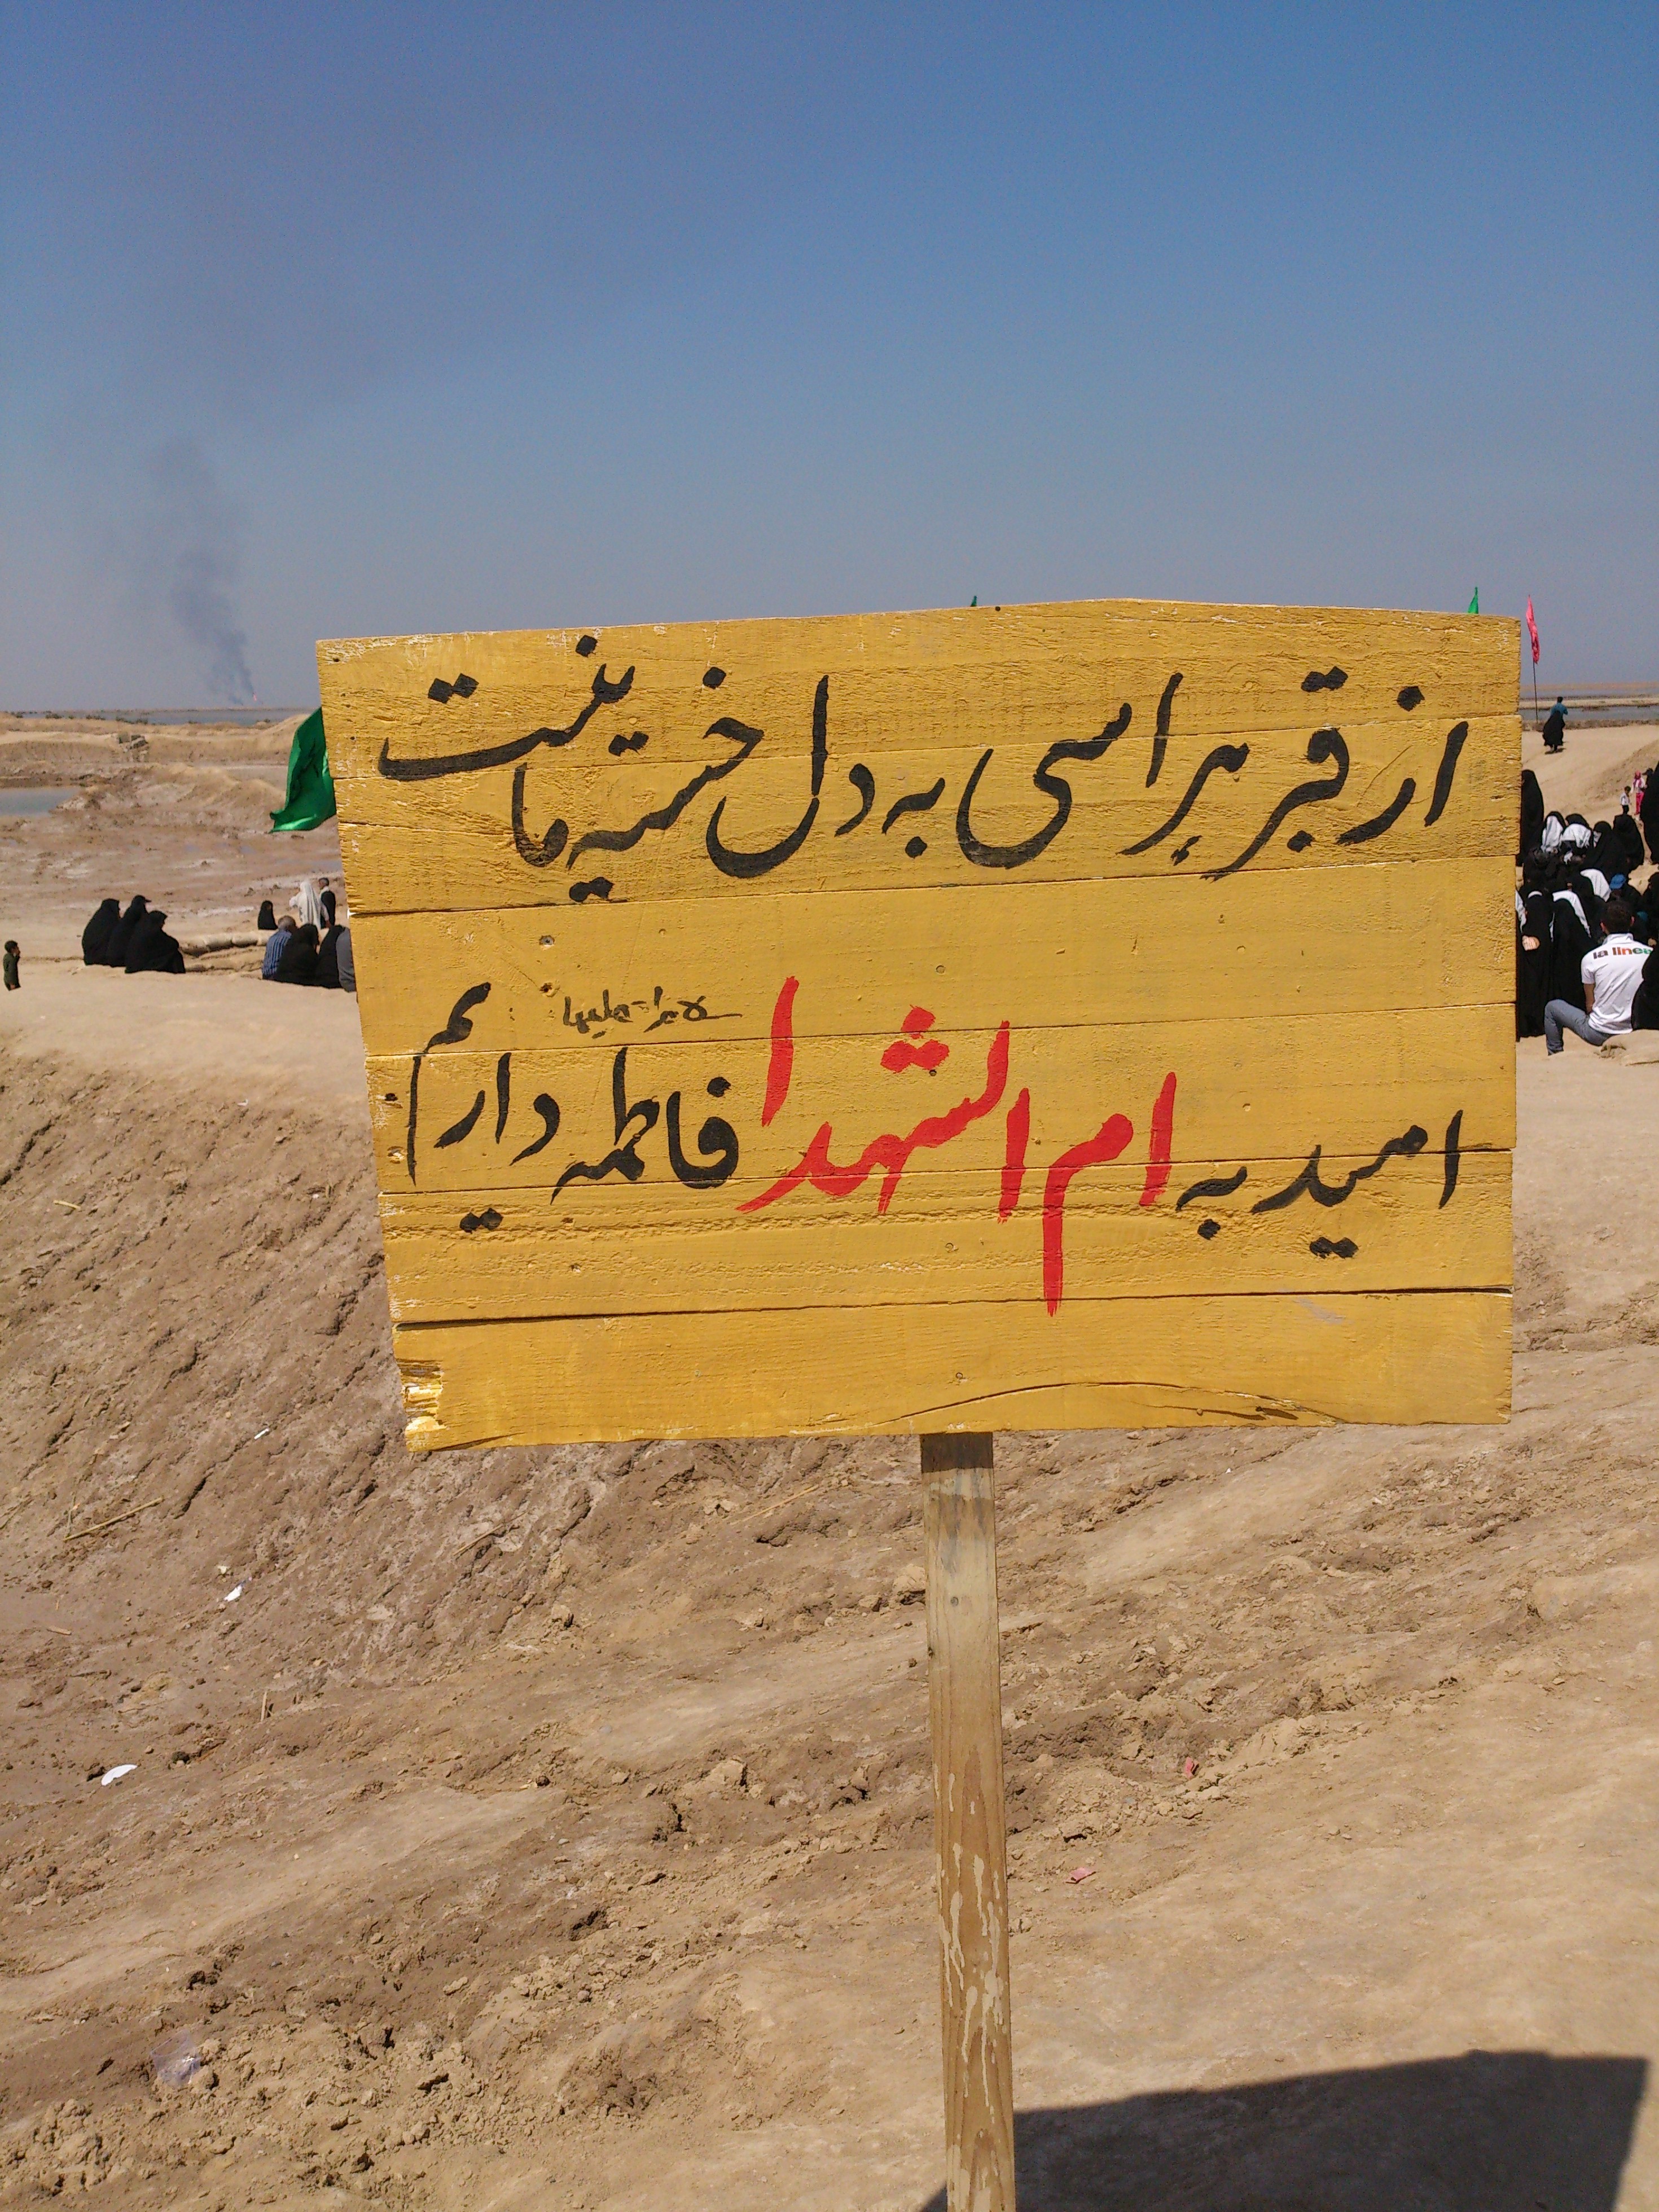 از قبر هراسی به دل خسته ما نیست
امید به ام الشهدا فاطمه داریم
سلام الله علیها
la linea